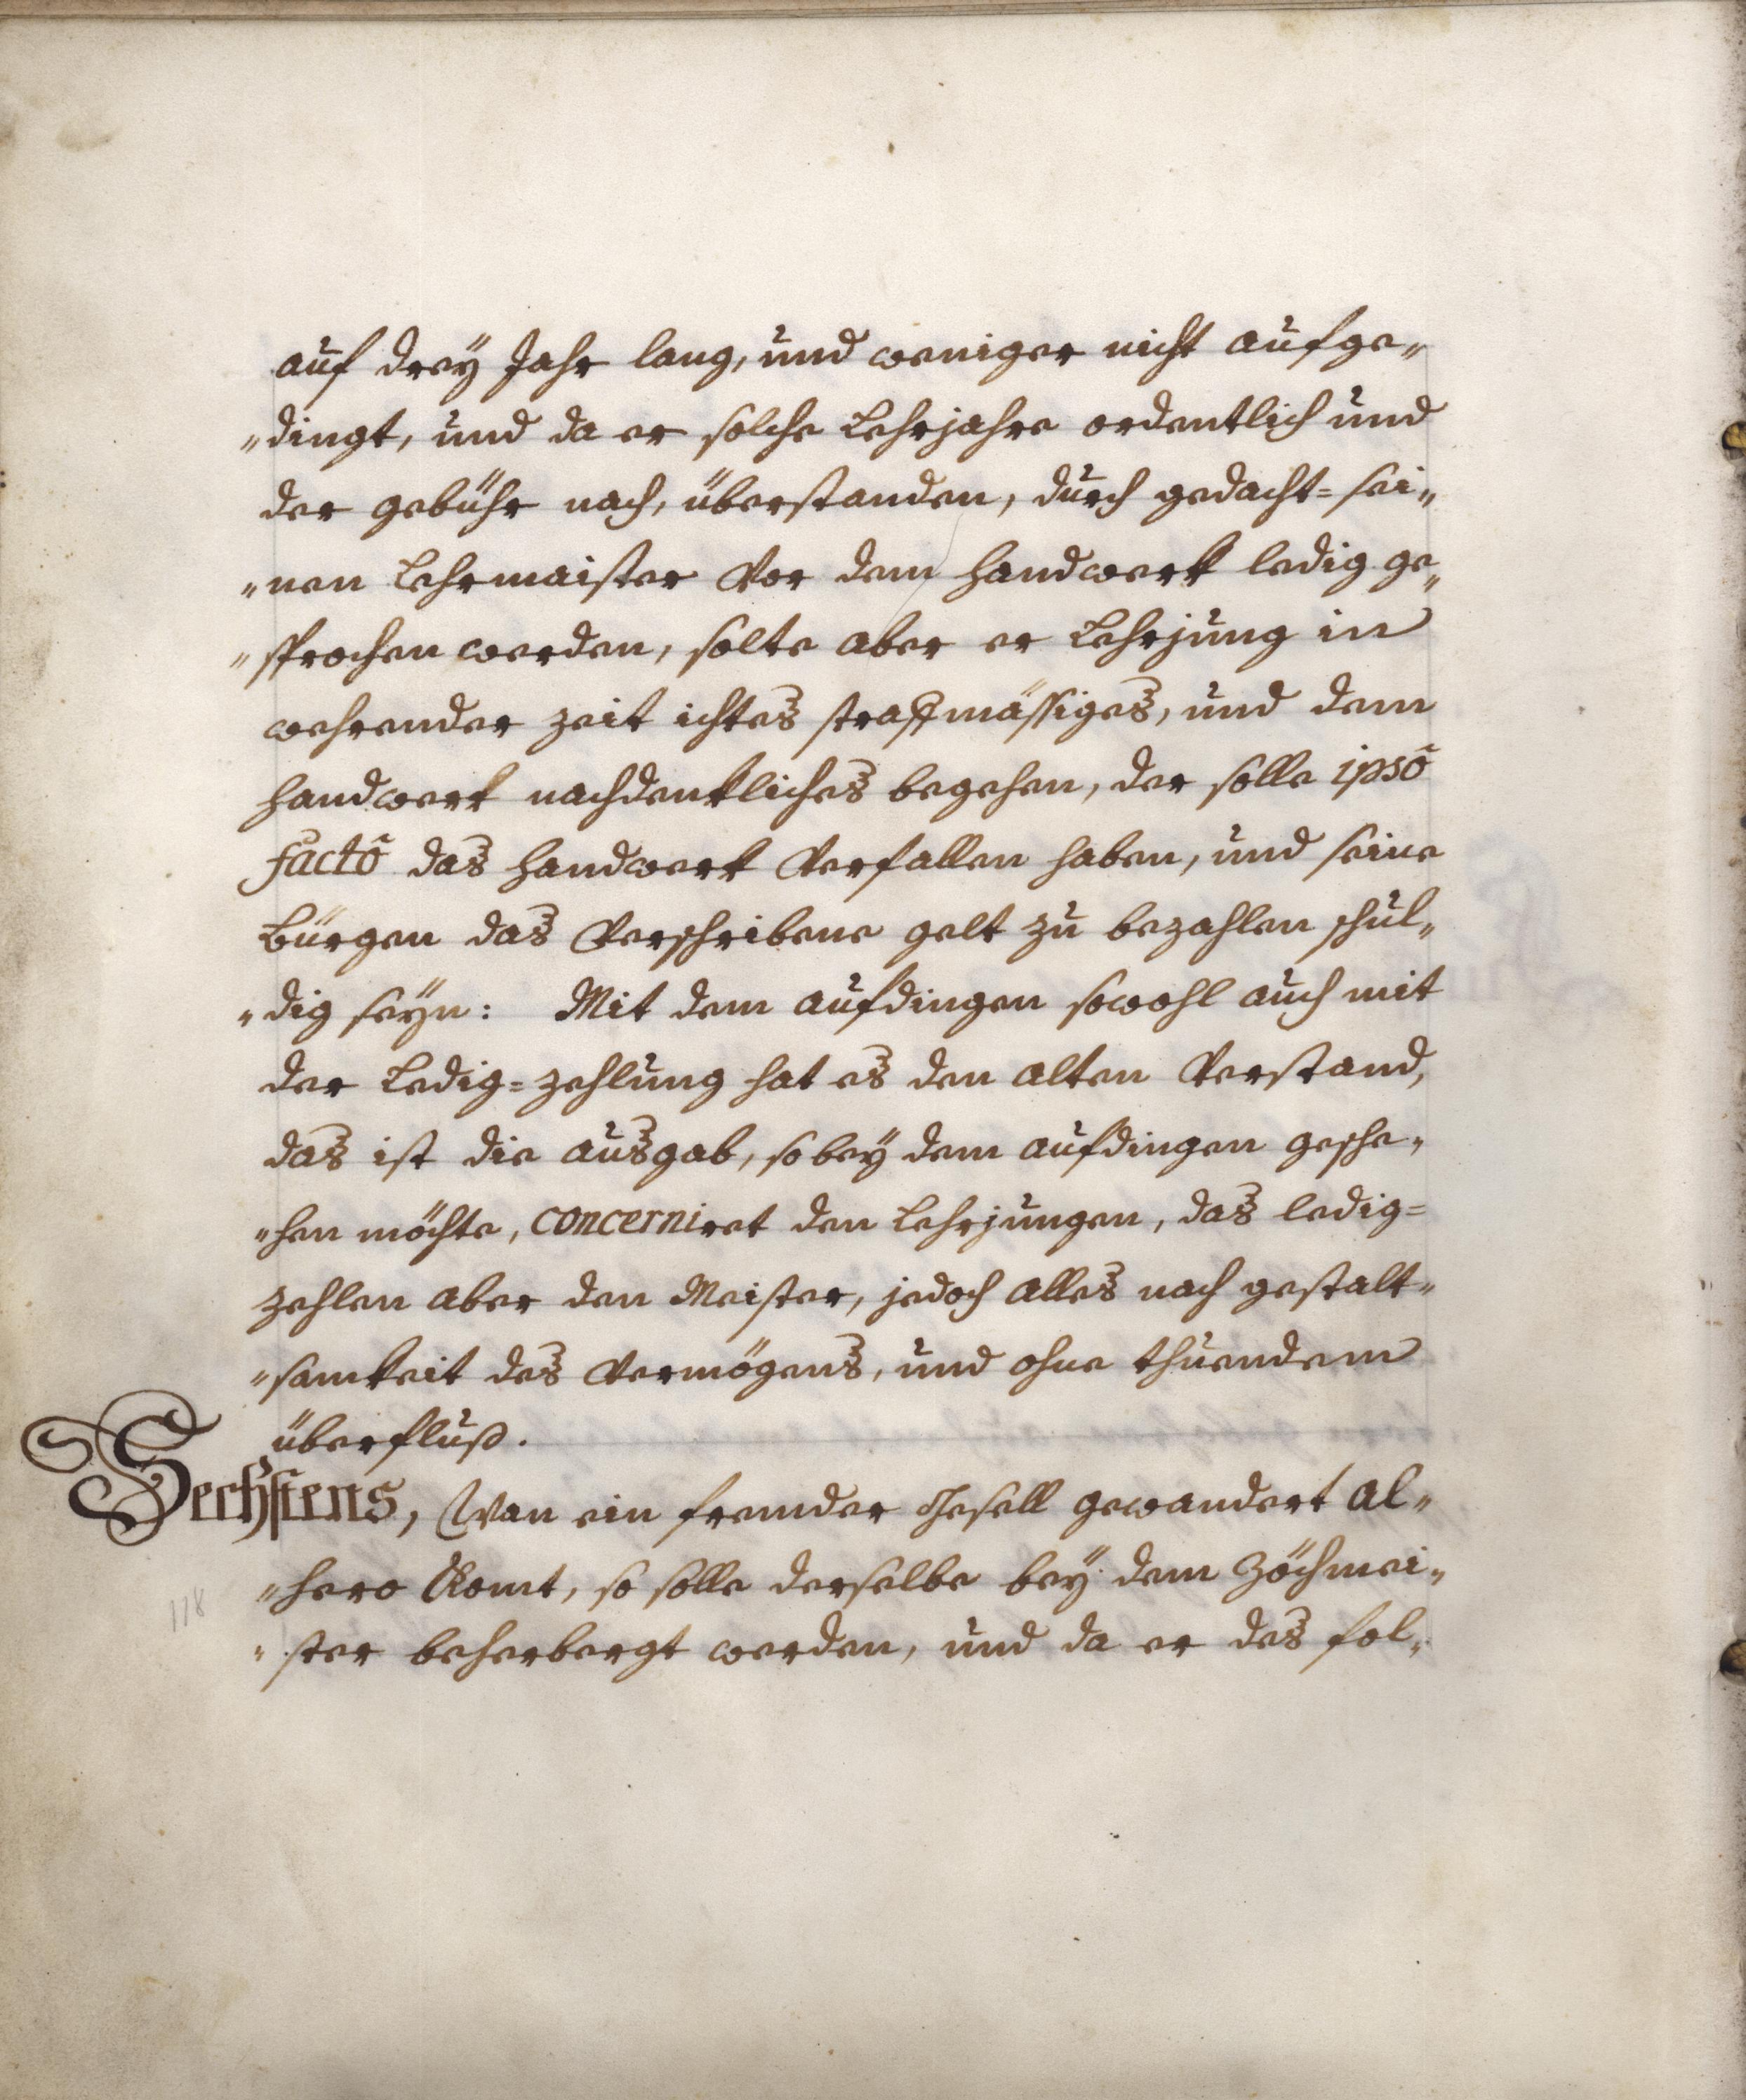 auf dreÿ Jahr lang, und weniger nicht aufge„
„dingt, und da er solche Lehrjahre ordentlich und
der gebühr nach, überstanden, durch gedacht= sei„
„nen Lehrmaister Vor dem handwerk ledig ge„
„sprochen werden, solte aber er Lehrjung in
wehrender zeit ichtes straffmässiges, und dem
handwerk nachdenkliches begehen, der solle ipsô
factô das handwerk Verfallen haben, und seine
Bürgen das Verschribene gelt zu bezahlen schul„
„dig seÿn: Mit dem aufdingen sowohl auch mit
der Ledig=zehlung hat es den alten Verstand,
das ist die ausgab, so beÿ dem aufdingen gesche„
„hen möchte, concerniret den Lehrjungen, das ledig=
zehlen aber den Meister, jedoch alles nach gestalt„
„samkeit des Vermögens, und ohne thuendem
überfluß.
Sechstens, Wan ein fremder Gesell gewandert al„
„hero Komt, so solle derselbe beÿ dem Zöchmei„
„ster beherbergt werden, und da er des fol„
118